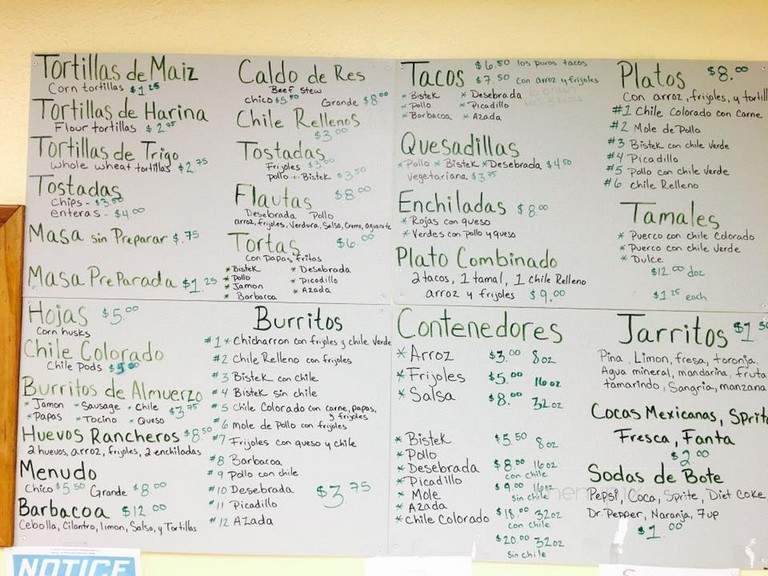 Tortillas de Maiz
Corn tortillas $1.25
Tortillas de Harina
Flour tortillas $2.25
Tortillas de Trigo
Whole wheat tortillas $2.75
Tostadas
Chips - $3.50
enteras - $4.00
Masa sin Preparar $.75
Masa PrePARADA $1.25
Caldo de Res
Beef Stew
chico $5.50 Grande $8.00
Chile Rellenos
$3.00
Tostadas
Frijoles $3.00
pollo - Bistek $3.50
Flautas $8.00
Desebrada Pollo
arroz, frijoles, Verdura, Salsa, Crema, aguacate
Tortas $6.00
con papas fritas
* Bistek * Desebrada
* Pollo * Picadillo
* Jamon * Azada
* Barbacoa
Tacos $6.50 los puros tacos
$7.50 con arroz y frijoles
* Bistek * Desebrada
* Pollo * Picadillo
* Barbacoa * Azada
Quesadillas
* Pollo * Bistek * Desebrada $4.50
Vegetariana $3.75
Enchiladas $8.00
* Rojas con queso
* Verdes con pollo y queso
Plato Combinado
2 tacos, 1 tamal, 1 Chile Relleno
arroz y frijoles $9.00
Platos $8.00
Con arroz, frijoles, y tortill
#1 Chile Colorado con Carne
#2 Mole de Pollo
#3 Bistek con chile Verde
#4 Picadillo
#5 Pollo con chile Verde
#6 Chile Relleno
Tamales
* Puerco con chile Colorado
* Puerco con chile Verde
* Dulce
$12.00 doz
$1.25 each
Hojas $5.00
Corn husks
Chile Colorado
Chile Pods
Burritos de Almuerzo
* Jamon * Sausage * Chile $3.75
* Papas * Tocino * Queso
Huevos Rancheros $8.50
2 huevos, arroz, frijoles, 2 enchiladas
Menudo
Chico $5.50 Grande $8.00
Barbacoa $12.00
Cebolla, Cilantro, limon, Salsa, y Tortillas
Burritos
#1 * Chicharron con frijoles y chile Verde
#2 Chile Relleno con frijoles
#3 Bistek con chile
#4 Bistek sin chile
#5 Chile Colorado con carne, papas,
y frijoles
#6 Mole de Pollo con frijoles
#7 Frijoles con queso y chile
#8 Barbacoa
#9 Pollo con chile
#10 Desebrada
#11 Picadillo
#12 AZada
$3.75
Contenedores
* Arroz $3.00 8oz
* Frijoles $5.00 16oz
* Salsa $8.00 32oz
* Bistek $5.50 8oz
* Pollo
* Desebrada $8.00 16oz
con chile
* Picadillo $9.00 16oz
sin chile
* Mole
* Azada $18.00 32oz
con chile
* Chile Colorado
$20.00 32oz
Sin chile
Jarritos $1.50
Pina, Limon, fresa, toronja,
Agua mineral, mandarina, fruta
tamarindo, Sangria, manzana
Cocas Mexicanas, Sprite
Fresca, Fanta
$2.00
Sodas de Bote
Pepsi, Coca, Sprite, Diet Coke
Dr. Pepper, Naranja, 7up
$1.00
NOTICE